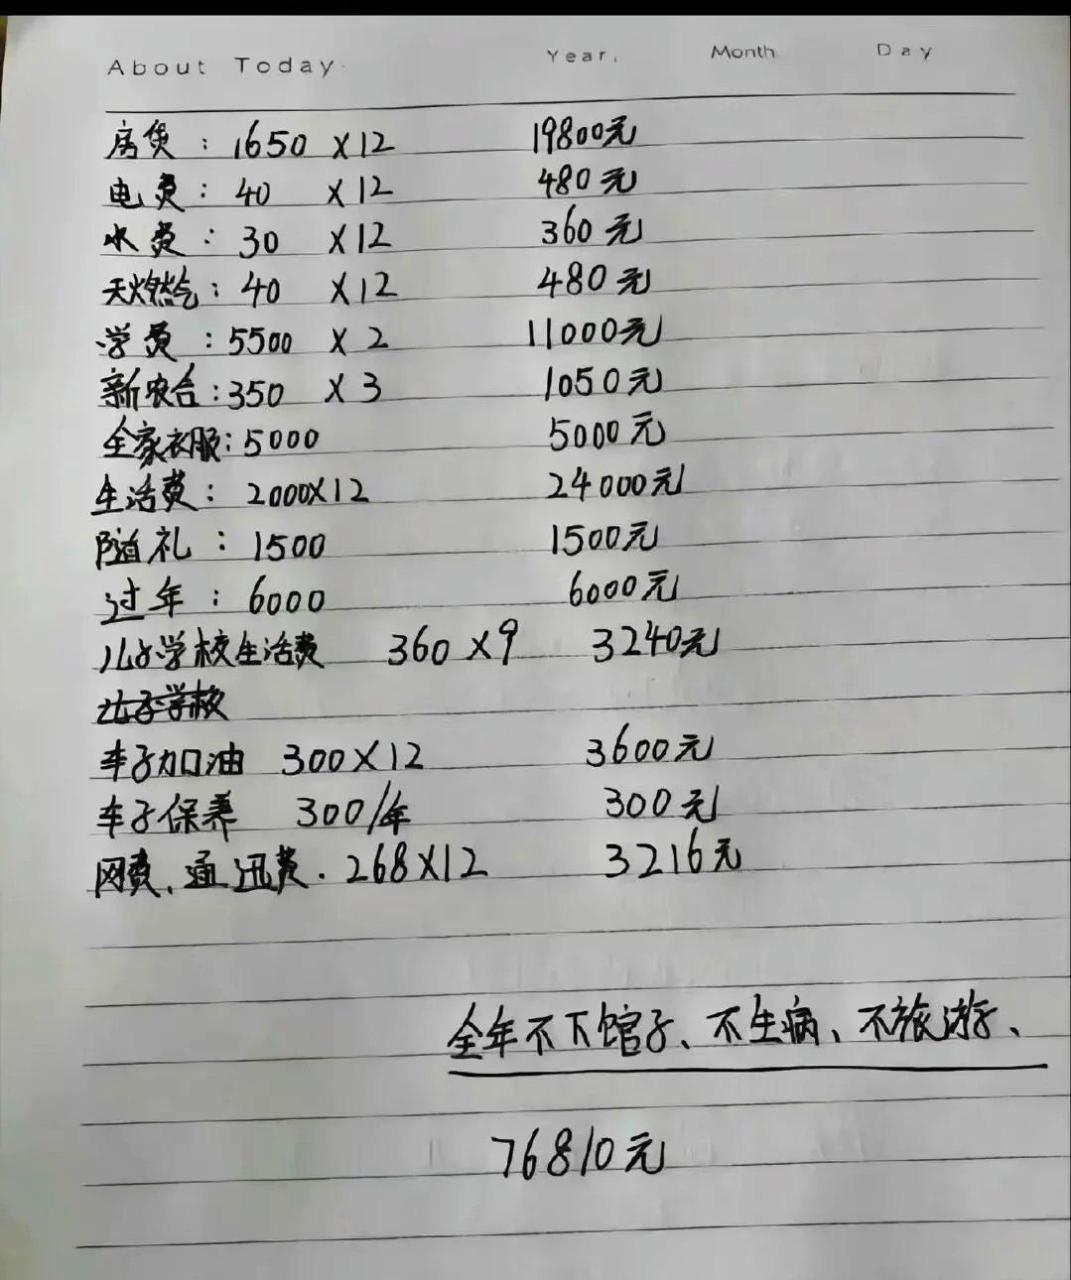 About Today Year. Month Day
房贷：1650 ×12 19800元
电费：40 ×12 480元
水费：30 ×12 360元
天燃气：40 ×12 480元
学费：5500 ×2 11000元
新农合：350 ×3 1050元
全家衣服：5000 5000元
生活费：2000×12 24000元
随礼：1500 1500元
过年：6000 6000元
儿子学校生活费 360×9 3240元
儿子学校
车子加油 300×12 3600元
车子保养 300/年 300元
网费、通迅费．268×12 3216元
全年不下馆子、不生病、不旅游、
76810元